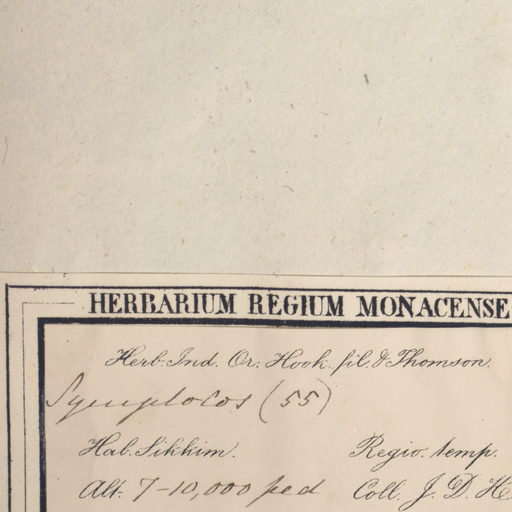 HERBARIUM REGIUM MONACENSE
Herb. Ind. Or. Hook. fil. & Thomson.
Symplocos (55)
Hab. Sikkim. Regio. temp.
Alt. 7-10,000 ped Coll. J. D. H